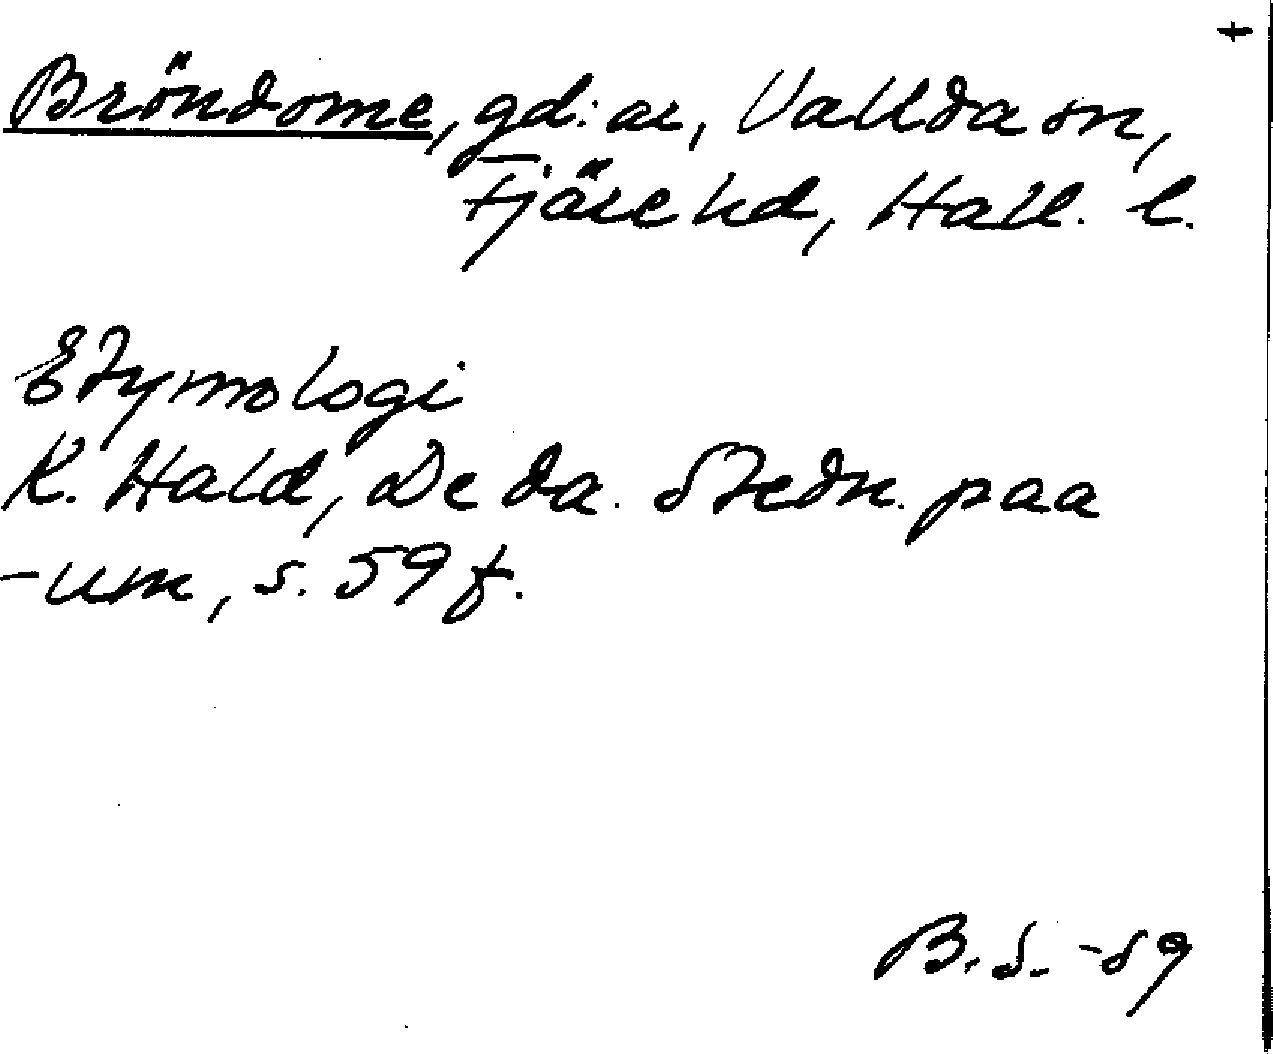 +
Bröndome, gd:ar, Vallda sn,
Fjäre hd, Hall. l.
Etymologi
K. Hald, De da. Stedn. paa
-um, s. 59 f.
B. S. -59